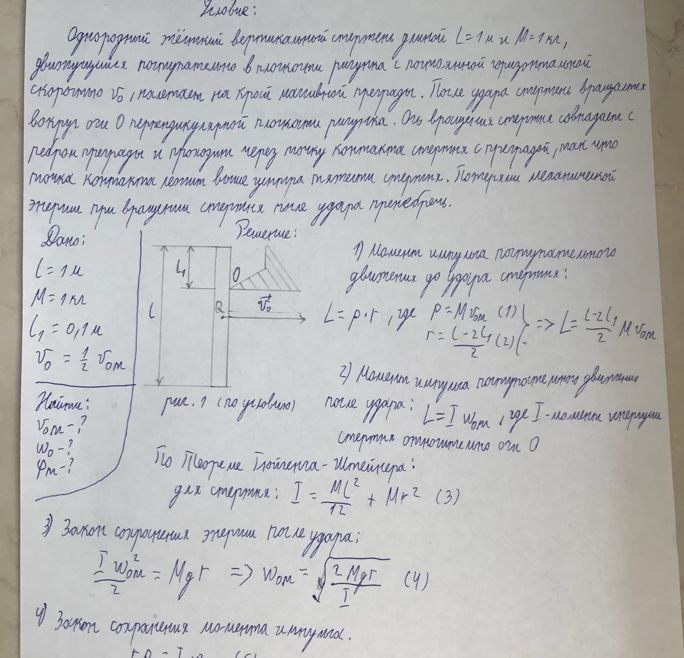 Условие:
Однородный жёсткий вертикальный стержень длиной L=1м и M=1кг,
движущийся поступательно в плоскости рисунка с постоянной горизонтальной
скоростью v₀, налетает на край массивной преграды. После удара стержень вращается
вокруг оси O перпендикулярной плоскости рисунка. Ось вращения стержня совпадает с
ребром преграды и проходит через точку контакта стержня с преградой, так что
точка контакта лежит выше центра тяжести стержня. Потерями механической
энергии при вращении стержня после удара пренебречь.
Дано:
L=1м
M=1кг
L₁=0,1м
v₀ = 1/2 v₀m
Найти:
v₀m-?
w₀-?
φm-?
Решение:
L
L₁
O
v₀
рис. 1 (по условию)
1) Момент импульса поступательного
движения до удара стержня:
L = p·r, где p = Mv₀m (1)
r = (L-2L₁)/2 (2) => L = (L-2L₁)/2 Mv₀m
2) Момент импульса поступательного движения
после удара: L = I w₀m, где I-момент инерции
стержня относительно оси O
По Теореме Гюйгенса-Штейнера:
для стержня: I = ML²/12 + Mr² (3)
3) Закон сохранения энергии после удара:
I w₀m²/2 = Mgr => w₀m = √(2Mgr/I) (4)
4) Закон сохранения момента импульса.